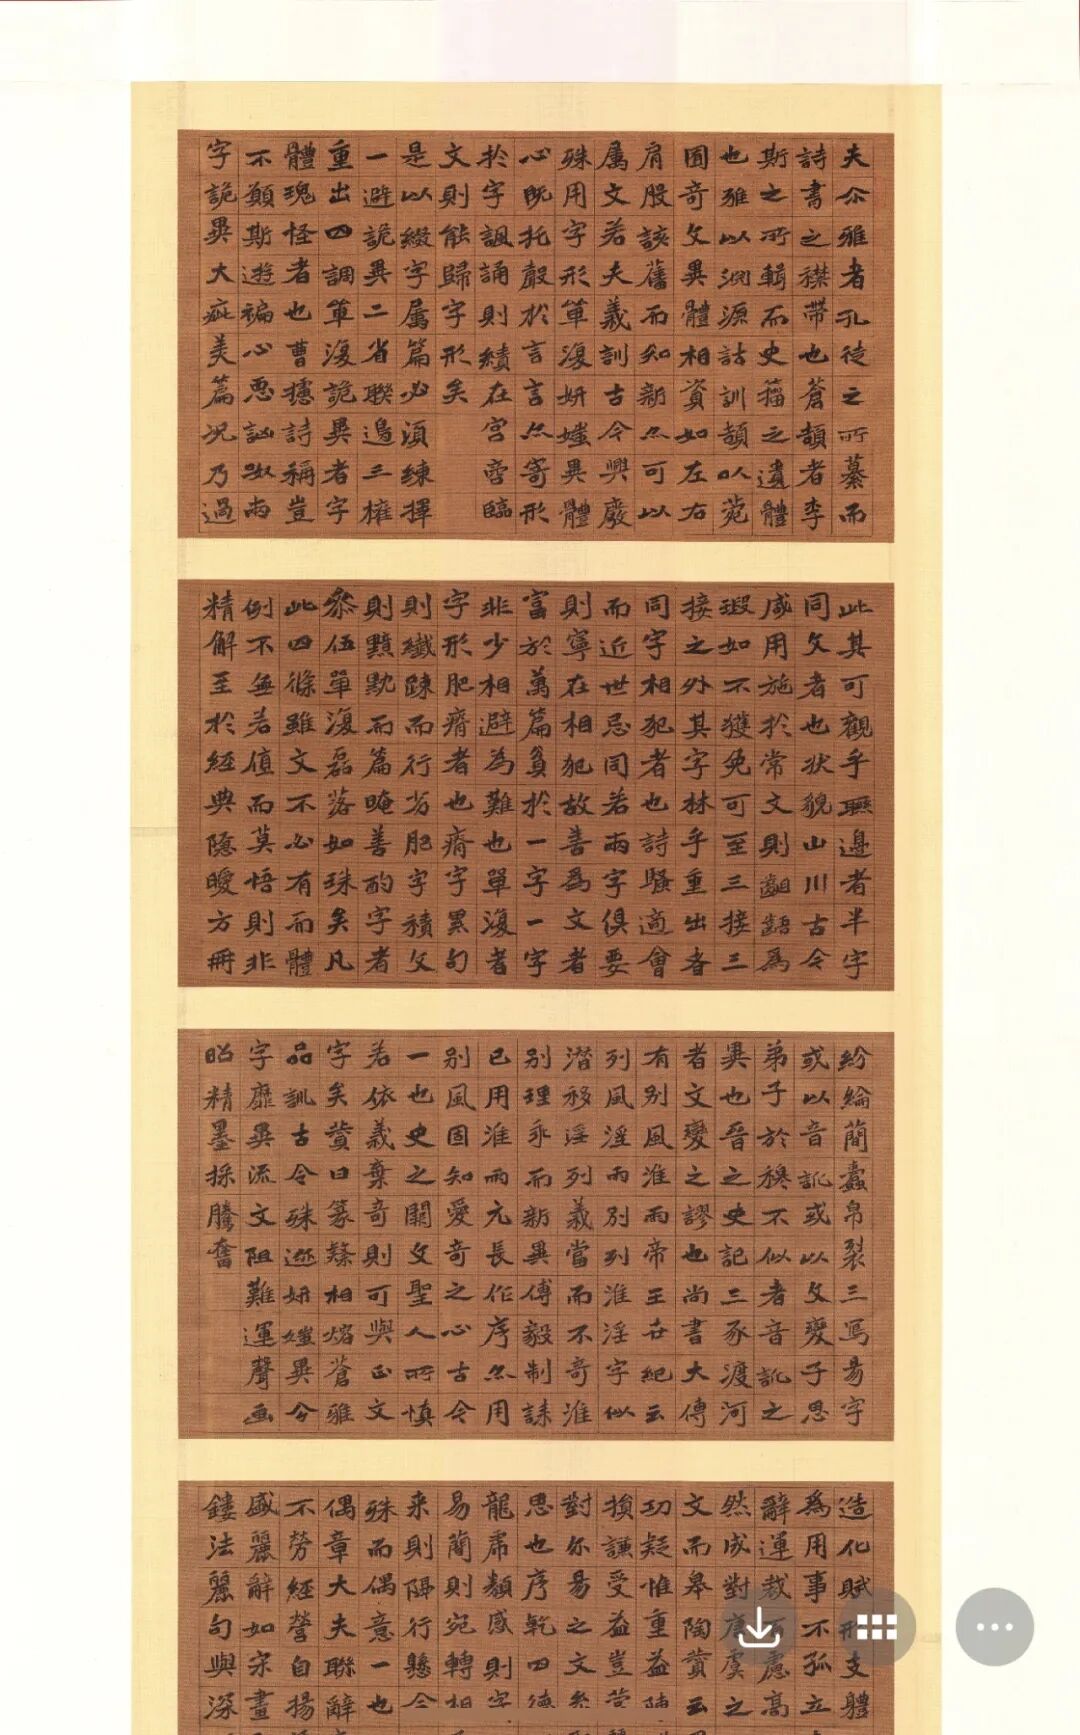 夫尒雅者孔徒之所纂而
詩書之襟帶也蒼頡者李
斯之所輯而史籀之遺體
也雅以淵源詁訓頡以苑
囿奇文異體相資如左右
肩股該舊而知新亦可以
属文若夫義訓古今興廢
殊用字形單復妍媸異體
心既托聲於言言亦寄形
於字諷誦則績在宮商臨
文則能歸字形矣
是以綴字属篇必須練擇
一避詭異二省聯邊三權
重出四調單復詭異者字
體瑰怪者也曹攄詩稱豈
不願斯遊褊心惡訩呶兩
字詭異大疵美篇况乃過
此其可觀乎聯邊者半字
同文者也狀貌山川古今
咸用施於常文則齟齬為
瑕如不獲免可至三接三
接之外其字林乎重出者
同字相犯者也詩騷適會
而近世忌同若兩字俱要
則寧在相犯故善為文者
富於萬篇貧於一字一字
非少相避為難也單復者
字形肥瘠者也瘠字累句
則纖疎而行劣肥字積文
則黯黕而篇暗善酌字者
叅伍單復磊落如珠矣凡
此四條雖文不必有而體
例不無若值而莫悟則非
精解至於經典隱曖方冊
紛綸簡蠹帛裂三寫易字
或以音訛或以文變子思
弟子於穆不似者音訛之
異也晉之史記三豕渡河
者文變之謬也尚書大傳
有别風淮雨帝王世紀云
列風淫雨别列淮淫字似
潜移淫列義當而不奇淮
别理乖而新異傅毅制誄
已用淮雨元長作序亦用
别風固知愛奇之心古今
一也史之闕文聖人所慎
若依義棄奇則可與正文
字矣贊曰篆隸相熔蒼雅
品訓古今殊迹妍媸異分
字靡異流文阻難運聲画
昭精墨採騰奮
造化賦形支體
為用事不孤立
辭運裁百慮高
然成對唐虞之
文而皋陶贊云
功疑惟重益
損謙受益豈
對尒易之文系
思也序乾四德
龍虎類感則字
易簡則宛轉相
来則隔行懸合
殊而偶意一也
偶章大夫聯辭
不勞經營自揚
盛麗辭如宋畫
鏤法麗句與深